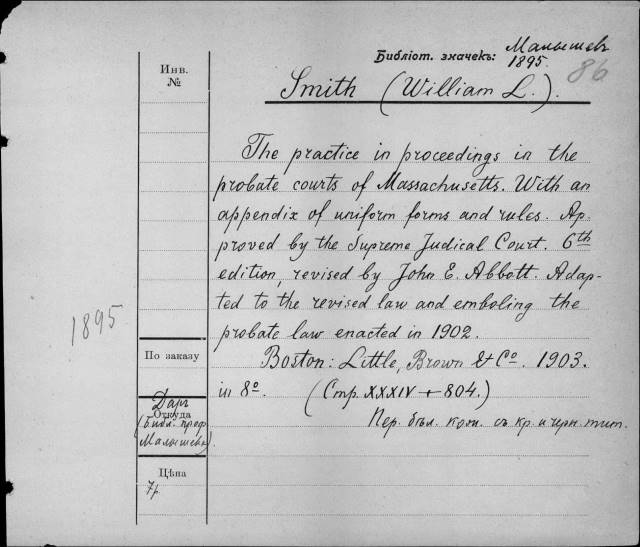 Библіот. значекъ: Малышевъ
1895.
86
Инв.
№
Smith (William L.).
The practice in proceedings in the
probate courts of Massachusetts. With an
appendix of uniform forms and rules. Ap-
proved by the Supreme Judical Court. 6th
edition, revised by John E. Abbott. Adap-
ted to the revised law and emboling the
probate law enacted in 1902.
1895
По заказу
Boston: Little, Brown & Co. 1903.
in 8o. (Стр. XXXIV + 804.)
Даръ
Откуда
(Библ. проф.
Малышева).
Пер. бѣл. кож. съ кр. и черн. тит.
Цѣна
7р.